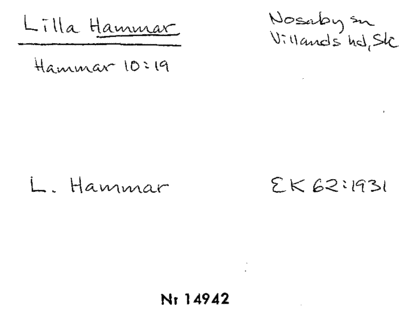 Lilla Hammar
Nosaby sn
Villands hd, Sk
Hammar 10:19
L. Hammar
EK 62:1931
Nr 14942